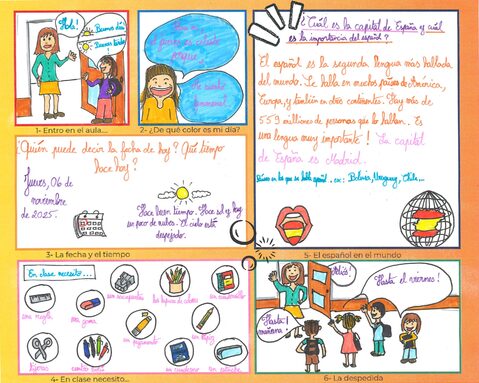 ¡Hola!
Buenos días
Buenas tardes
1- Entro en el aula...
jueves es celeste
porque
Me siento
fenomenal.
2- ¿De qué color es mi día?
¿Cuál es la capital de España y cuál
es la importancia del español?
El español es la segunda lengua más hablada
del mundo. Se habla en muchos países de América,
Europa, y también en otros continentes. Hay más de
559 millones de personas que lo hablan. Es
una lengua muy importante! La capital
de España es Madrid.
en los que se habla español. ex: Bolivia, Uruguay, Chile...
5- El español en el mundo
¿Quién puede decir la fecha de hoy? ¿Qué tiempo
hace hoy?
Jueves, 06 de
noviembre
de 2025.
Hace buen tiempo. Hace sol y hay
un poco de nubes. El cielo está
despejado.
3- La fecha y el tiempo
En clase necesito...
un sacapuntas
los lápices de colores
un cuadernillo
una regla
una goma
un pegamento
un lápiz
tijeras
un cuaderno
un estuche
4- En clase necesito...
¡Adiós!
¡Hasta el viernes!
¡Hasta
mañana!
6- La despedida